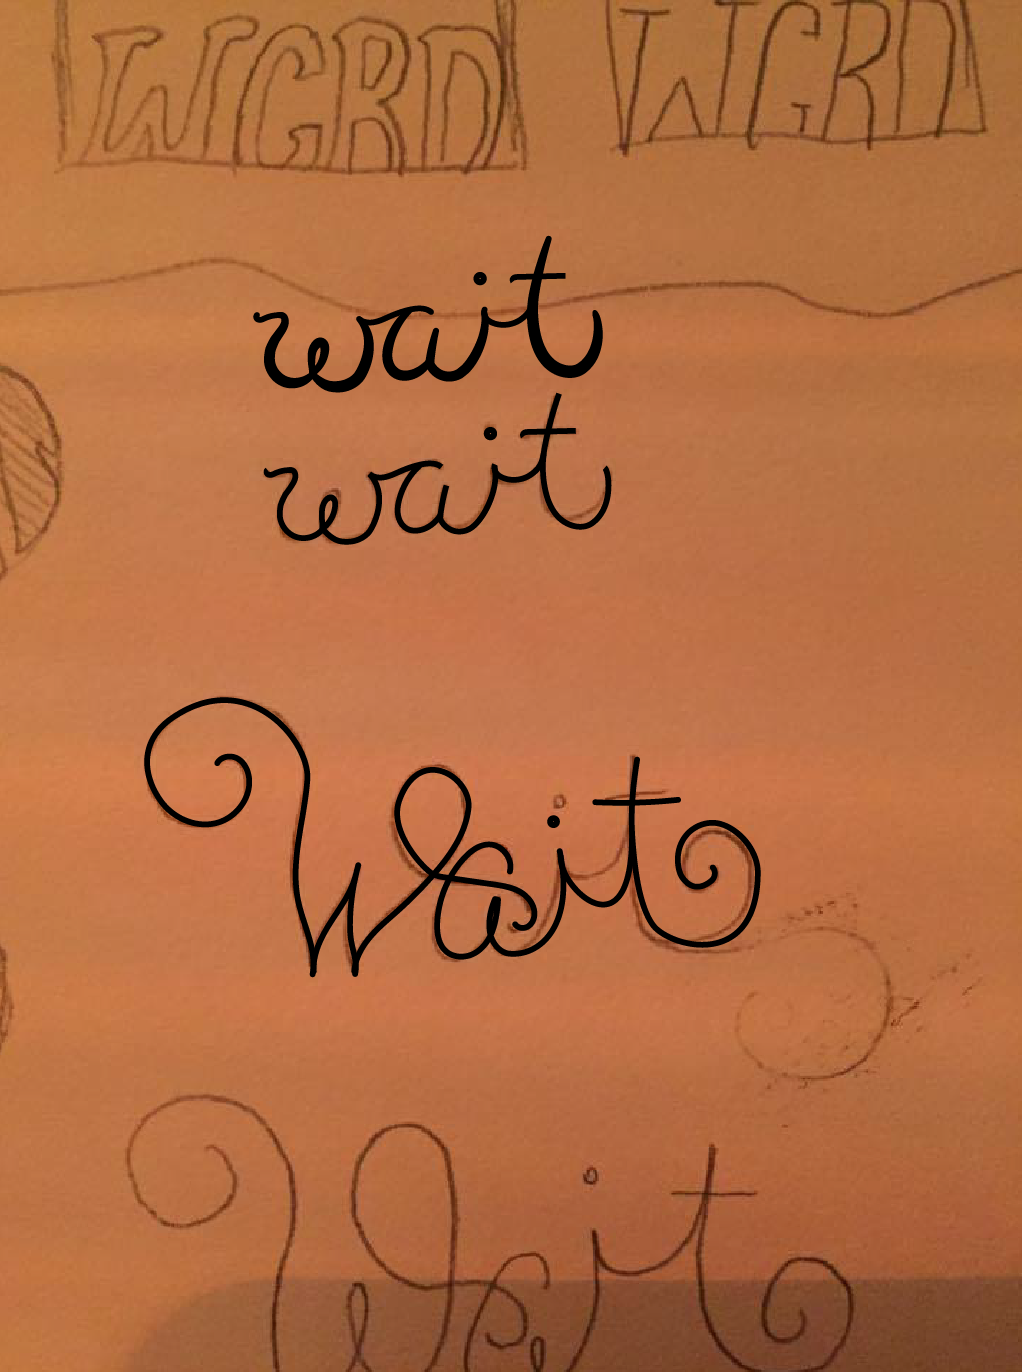 WGRD WGRD
wait
wait
Wait
Wait